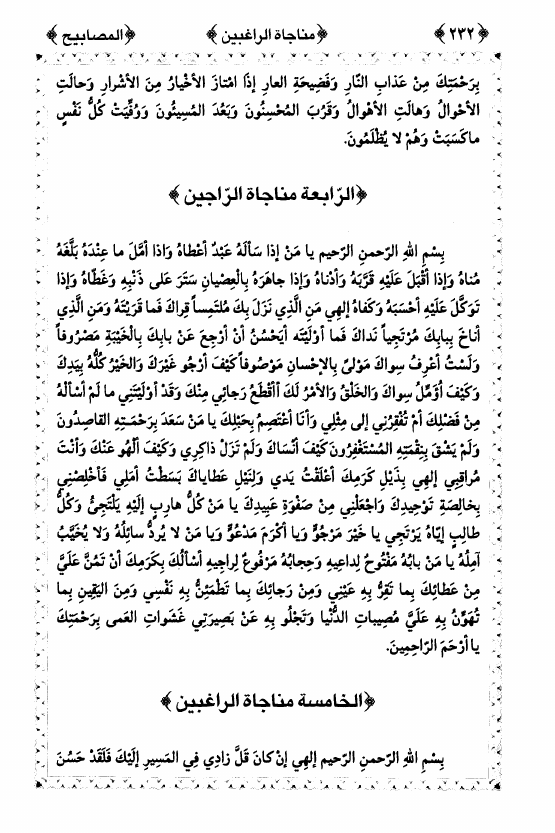 ﴿٢٣٢﴾ ﴿مناجاة الراغبين﴾ ﴿المصابيح﴾
بِرَحْمَتِكَ مِنْ عَذابِ النَّارِ وَفَضِيحَةِ العارِ إذَا امْتازَ الأخْيارُ مِنَ الأشْرارِ وَحالَتِ
الأحْوالُ وَهالَتِ الأهْوالُ وَقَرُبَ المُحْسِنُونَ وَبَعُدَ المُسِيئُونَ وَوُفِّيَتْ كُلُّ نَفْسٍ
ماكَسَبَتْ وَهُمْ لا يُظْلَمُونَ.
﴿الرّابعة مناجاة الرّاجين﴾
بِسْمِ اللهِ الرّحمنِ الرّحيم يا مَنْ إذا سَألَهُ عَبْدٌ أعْطاهُ وَاذا أمَّلَ ما عِنْدَهُ بَلَّغَهُ
مُناهُ وَإذا أقْبَلَ عَلَيْهِ قَرَّبَهُ وَأدْناهُ وَإذا جاهَرَهُ بِالْعِصْيانِ سَتَرَ عَلى ذَنْبِهِ وَغَطَّاهُ وَإذا
تَوَكَّلَ عَلَيْهِ أحْسَبَهُ وَكَفاهُ إلهِي مَنِ الَّذِي نَزَلَ بِكَ مُلتَمِساً قِراكَ فَما قَرَيْتَهُ وَمَنِ الَّذِي
أناخَ بِبابِكَ مُرْتَجِياً نَداكَ فَما أوْلَيْتَه أيَحْسُنُ أنْ أرْجِعَ عَنْ بابِكَ بِالْخَيْبَةِ مَصْرُوفاً
وَلَسْتُ أعْرِفُ سِواكَ مَوْلىً بِالإحْسانِ مَوْصُوفاً كَيْفَ أرْجُو غَيْرَكَ وَالخَيْرُ كُلُّهُ بِيَدِكَ
وَكَيْفَ أُؤَمِّلُ سِواكَ وَالخَلْقُ وَالأمْرُ لَكَ أأقْطَعُ رَجائِي مِنْكَ وَقَدْ أوْلَيْتَنِي ما لَمْ أسْألْهُ
مِنْ فَضْلِكَ أمْ تُفْقِرُنِي إلى مِثْلِي وَأنَا أعْتَصِمُ بِحَبْلِكَ يا مَنْ سَعَدَ بِرَحْمَتِهِ القاصِدُونَ
وَلَمْ يَشْقَ بِنِقْمَتِهِ المُسْتَغْفِرُونَ كَيْفَ أنْساكَ وَلَمْ تَزَلْ ذاكِرِي وَكَيْفَ ألْهُو عَنْكَ وَأنْتَ
مُراقِبِي إلهِي بِذَيْلِ كَرَمِكَ أعْلَقْتُ يَدي وَلِنَيْلِ عَطاياكَ بَسَطْتُ أمَلِي فَأخْلِصْنِي
بِخالِصَةِ تَوْحِيدِكَ وَاجْعَلْنِي مِنْ صَفْوَةِ عَبِيدِكَ يا مَنْ كُلُّ هارِبٍ إلَيْهِ يَلْتَجِئُ وَكُلُّ
طالِبٍ إيّاهُ يَرْتَجِي يا خَيْرَ مَرْجُوٍّ وَيا أكْرَمَ مَدْعُوٍّ وَيا مَنْ لا يُرَدُّ سائِلُهُ وَلا يُخَيَّبُ
آمِلُهُ يا مَنْ بابُهُ مَفْتُوحٌ لِداعِيهِ وَحِجابُهُ مَرْفُوعٌ لِراجِيهِ أسْألُكَ بِكَرَمِكَ أنْ تَمُنَّ عَلَيَّ
مِنْ عَطائِكَ بِما تَقِرُّ بِهِ عَيْنِي وَمِنْ رَجائِكَ بِما تَطْمَئِنُّ بِهِ نَفْسِي وَمِنَ اليَقِينِ بِما
تُهَوِّنُ بِهِ عَلَيَّ مُصِيباتِ الدُّنْيا وَتَجْلُو بِهِ عَنْ بَصِيرَتِي غَشَواتِ العَمى بِرَحْمَتِكَ
يا أرْحَمَ الرّاحِمِينَ.
﴿الخامسة مناجاة الراغبين﴾
بِسْمِ اللهِ الرّحمنِ الرّحيم إلهِي إنْ كانَ قَلَّ زادِي فِي المَسِيرِ إلَيْكَ فَلَقَدْ حَسُنَ